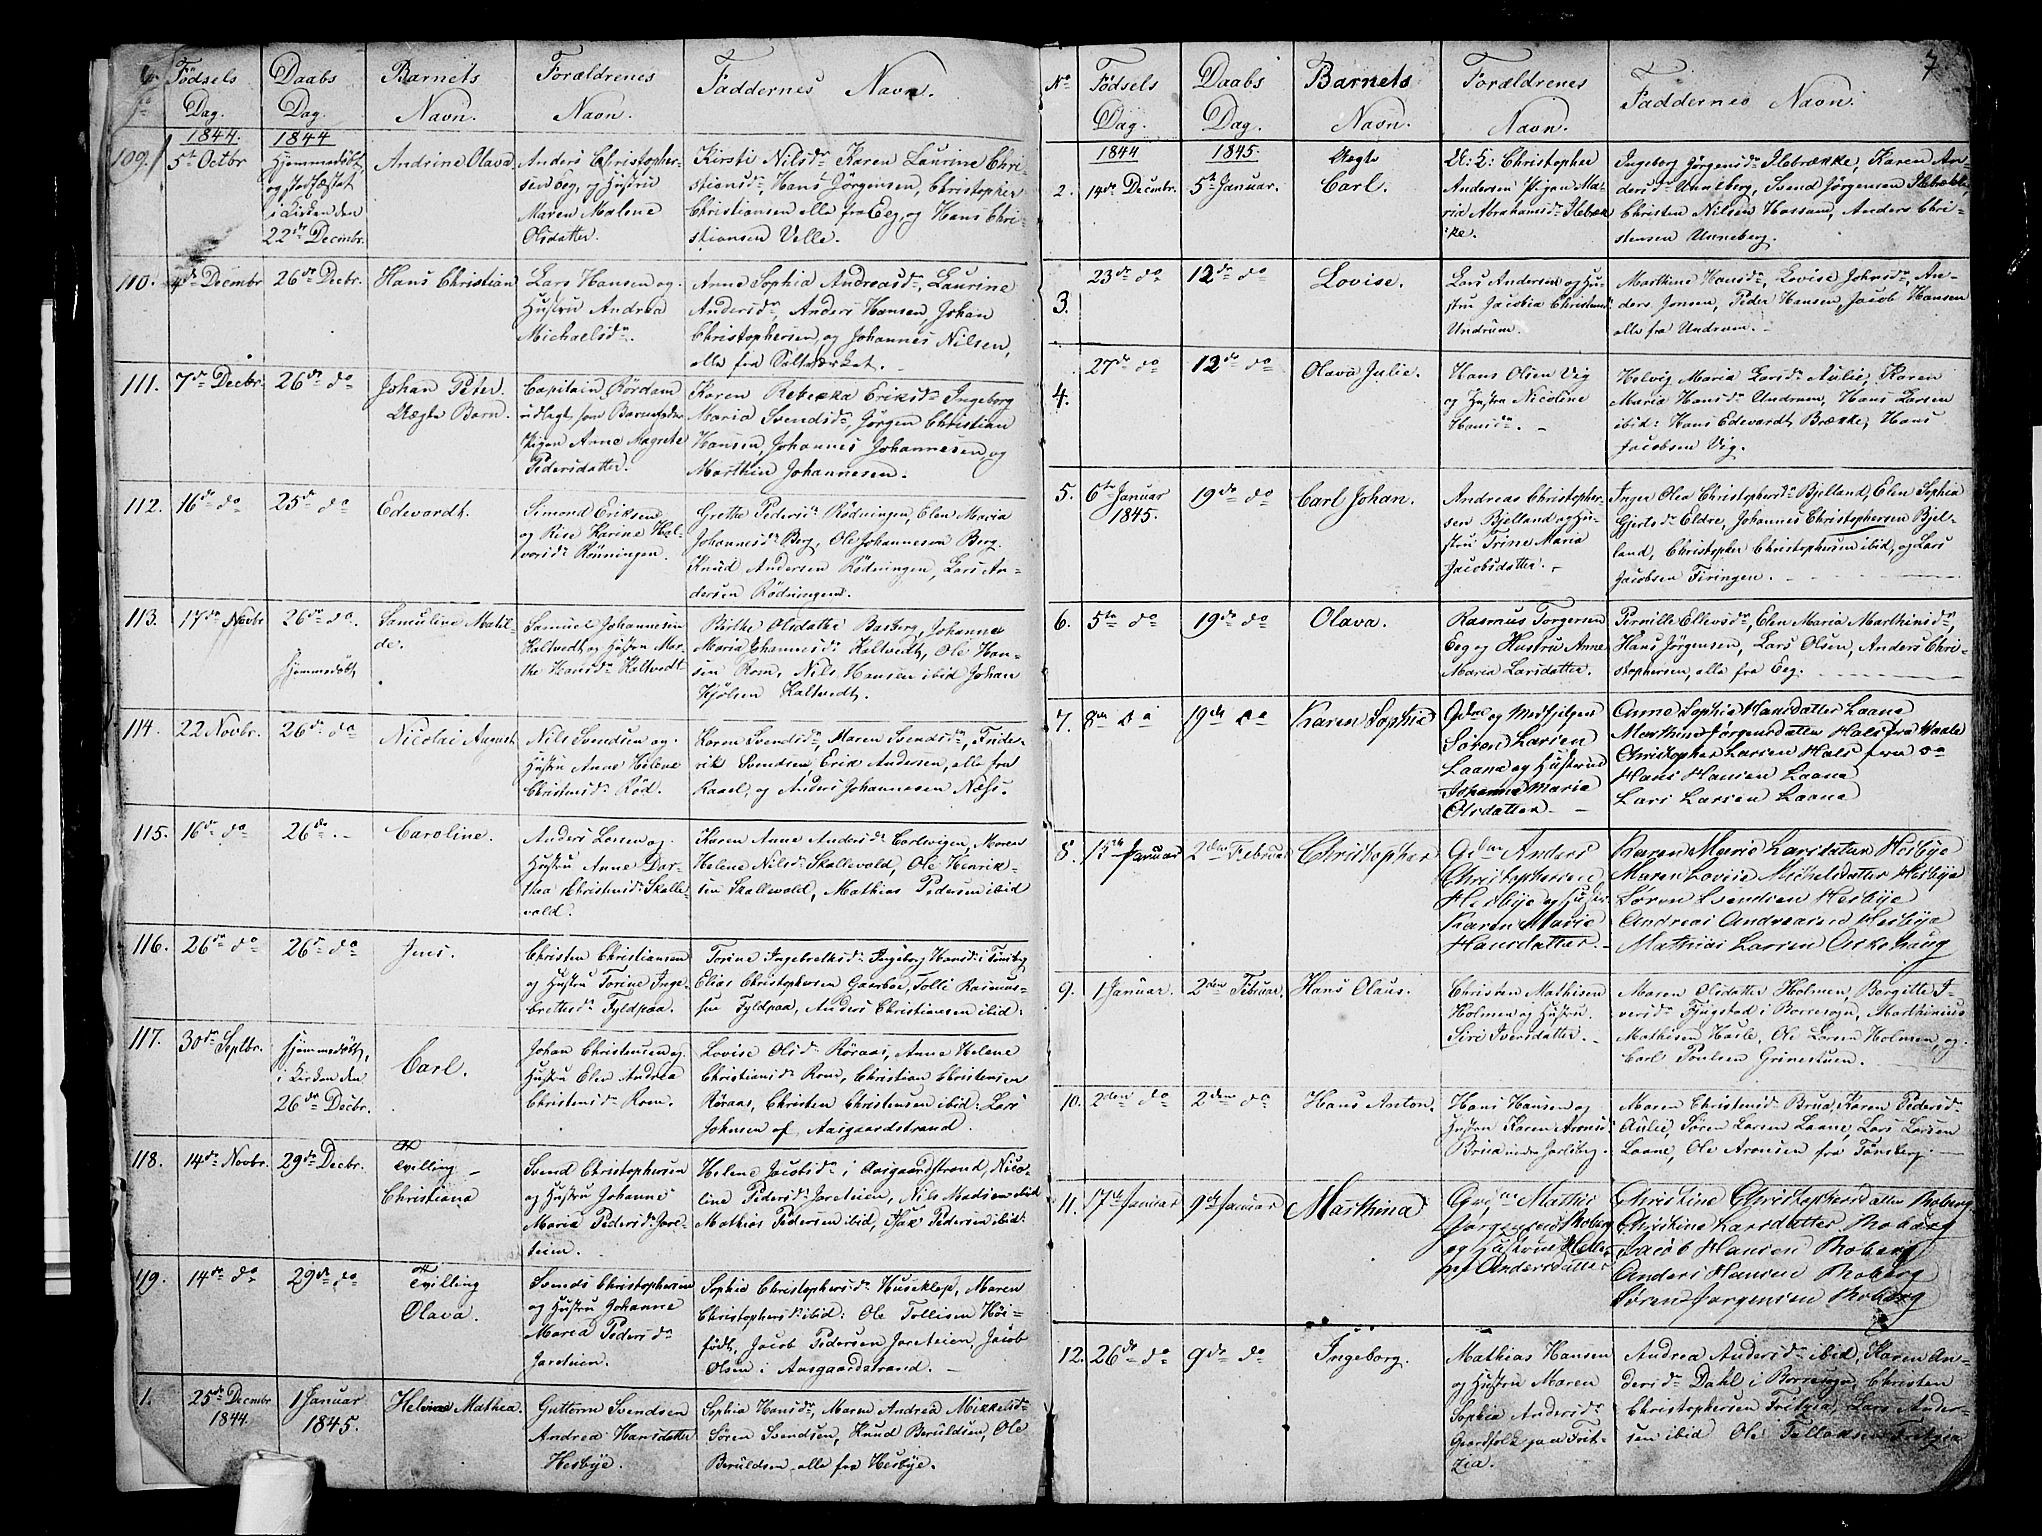 No
Fødsels
Dag.
Daabs
Dag.
Barnets
Navn.
Forældrenes
Navn.
Faddernes Navn.
109.
1844.
5te Octbr
1844
Hjemmedøbt
og stadfæstet
i Kirken den
22de Decmbr.
Andrine Olava
Anders Christopher-
sen Eeg, og Hustru
Maren Malene
Olsdatter.
Kirsti Nilsdr Karen Laurine Chri-
stiansdr, Hans Jørgensen, Christopher
Christiansen alle fra Eeg, og Hans Chri-
stiansen Velle.
110.
4de Decmbr
26de Decbr.
Hans Christian
Lars Hansen og
Hustru Andrea
Michaelsdr.
Anne Sophia Andreasdr, Laurine
Andersdr, Anders Hansen Johan
Christophersen, og Johannes Nilsen,
alle fra Saltværket.
111.
7de Decbr.
26de do
Johan Peter.
Uægte Barn.
Capitain Rørdam
udlagt som Barnefader
Pigen Anne Magrete
Pedersdatter.
Karen Rebekka Eriksdr Ingeborg
Maria Svendsdr, Jørgen Christian
Hansen, Johannes Johannesen og
Marthin Johannesen.
112.
16de do
25de do
Edevardt.
Simond Eriksen
og Rise Karine Hal-
vorsdr Rønningen.
Grethe Pedersdr Rødningen, Elen Maria
Johannesdr Berg, Ole Johannesen Berg.
Knud Andersen Rødningen, Lars An-
dersen Rødningen.
113.
17de Novbr
26de do.
Hjemmedøbt
Samuline Matil-
de.
Samuel Johannesen
Kaltvedt og Hustru Mar-
the Hansdr Kaltvedt
Birthe Olsdatter Basberg, Johanne
Maria Johannesdr Kaltvedt, Ole Han-
sen Rom, Nils Hansen ibid Johan
Kjølsen Kaltvedt.
114.
22 Novbr.
26de do
Nicolai August
Nils Svendsen og
Hustru Anne Helene
Christensdr Rød.
Karen Svendsdr, Maren Svendsdr, Fride-
rik Svendsen Erik Andersen, alle fra
Raael, og Anders Johannesen Næss.
115.
16de do
26de
Caroline.
Anders Larsen og
Hustru Anne Dor-
thea Christensdr Skalle-
vold.
Karen Anne Andersdr Carlsvigen, Maren
Helene Nilsdr Skallevold, Ole Henrik-
sen Skallevold, Mathias Pedersen ibid
116.
26de do
26de do
Jens.
Christen Christiansen
og Hustru Torine Inge-
bretsdr Fyldpaa.
Torine Ingebretsdr Ingeborg Hansdr i Tønsberg
Elias Christophersen Gaarboe, Tolli Rasmus-
sen Fyldpaa, Anders Christiansen ibid:
117.
30de Septbr.
Hjemmedøbt,
i Kirken den
26de Decbr.
Carl.
Johan Christensen og
Hustru Elen Andrea
Christensdr Rom.
Lovise Olsdr Røraas, Anne Helene
Christiansdr Rom, Christian Christensen
Røraas, Christen Christensen ibid: Lars
Johnsen af Aasgaardstrand.
118.
14de Novbr.
29de Decbr.
Tvilling
Christiana
Svend Christophersen
og Hustru Johanne
Maria Pedersdr Jare-
teien.
Helene Jacobsdr i Aasgaardstrand, Nico-
line Pedersdr Jareteien, Nils Madsen ibid
Mathias Pedersen ibid, Isax Pedersen ibid:
119.
14de do
29de do
Tvilling
Olava.
Svends Christophersen
og Hustru Johanne
Maria Pedersdr
Jareteien.
Sophie Christophersdr Huseklep, Maren
Christophersdr ibid: Ole Tollisen Høi-
født, Jacob Pedersen Jareteien, Jacob
Olsen i Aasgaardstrand.
1.
25de Decmbr
1844.
1 Januar
1845.
Helvine Mathea.
Guttorm Svendsen
Andrea Hansdatter
Hesbye.
Sophia Hansdr, Maren Andrea Mikkelsdr
Søren Svendsen, Knud Beruldsen, Ole
Beruldsen alle fra Hesbye.
7
No
Fødsels
Dag.
Daabs
Dag.
Barnets
Navn.
Forældrenes
Navn.
Faddernes Navn.
2.
1844
14de Decmbr.
1845.
5te Januar.
Uægte
Carl.
U: K: Christopher
Andersen Pigen Ma-
rie Abrahamsdr Ilebræk-
ke.
Ingeborg Jørgensdr Ilebrække, Karen An-
dersdr Unneberg, Svend Jørgensen Ilebrække
Christen Nilsen Hassum, Anders Chri-
stensen Unneberg.
3.
23de do
12de do
Lovise.
Lars Andersen og Hu-
stru Jacobia Christensdr
Undrum.
Marthine Hansdr, Lovise Johnsdr, An-
ders Jonsen, Peder Hansen, Jacob Hansen
alle fra Undrum.
4.
27de do
12de do
Olava Julie.
Hans Olsen Vig
og Hustru Nicoline
Hansdr.
Helvig Maria Larsdr Aulie, Karen
Maria Hansdr Undrum, Hans Larsen
ibid: Hans Edevardt Brække, Hans
Jacobsen Vig.
5.
6te Januar
1845.
19de do
Carl Johan.
Andreas Christopher-
sen Bjelland og Hu-
stru Trine Maria
Jacobsdatter.
Inger Olea Christophersdr Bjelland, Elen Sophia
Gjertsdr Eldre, Johannes Christophersen Bjel-
land, Christopher Christophersen ibid, og Lars
Jacobsen Firingen.
6.
5te do
19de do
Olava.
Rasmus Torgersen
Eeg og Hustru Anne
Maria Larsdatter.
Pernille Ellevsdr, Elen Maria Marthinsdr,
Hans Jørgensen, Lars Olsen, Anders Chri-
stophersen, alle fra Eeg.
7.
8de do
19de do
Karen Sophie
Gdmd og Medhjelper
Søren Larsen
Laane og Hustrue
Johanne Maria
Olsdatter
Anne Sophie Hansdatter Laane
Marthine Jørgensdatter Hals fra Vaale
Christopher Larsen Hals fra do
Hans Hansen Laane
Lars Larsen Laane
8.
Januar
2den Februar
Christopher
Anders
Christophersen
Hesbye og Hustru
Karen Marie
Hansdatter.
Karen Marie Larsdatter Hesbye
Maren Lovise Michelsdatter Hesbye
Søren Svendsen Hesbye
Andreas Andreasen Hesbye
Mathias Larsen Askehaug
9.
1 Januar.
2den Februar.
Hans Olaus.
Christen Mathisen
Holmen og Hustru
Siri Iversdatter.
Maren Olsdatter Holmen, Borgitte I-
versdr Fjugstad i Borresogn, Marthinius
Mathisen Hasle, Ole Larsen Holmen, og
Carl Poulsen Grinestuen.
10.
2den do
2den do
Hans Anton.
Hans Hansen og
Hustru Karen Aronsdr
Brua under Jarlsberg.
Maren Christensdr Brua, Karen Pedersdr
Aulie, Søren Larsen Laane, Lars Larsen
Laane, Ole Aronsen fra Tønsberg.
11.
17de Januar
9de Januar
Marthina
Mathis
Jørgensen Roberg
og Hustrue Helle-
ne Andersdatter
Christine Christophersdatter Roberg
Christine Larsdatter Roberg
Jacob Hansen Roberg
Anders Hansen Roberg
Søren Jørgensen Roberg
12.
26de do
9de do
Ingeborg.
Mathias Hansen
og Hustru Maren
Sophia Andersdr
Gaardfolk paa Frit-
zia.
Andrea Andersdr ibid, Karen An-
dersdr Dahl i Borresogn, Christen
Christophersen Fritzia, Lars Ander-
sen ibid Ole Fritzia